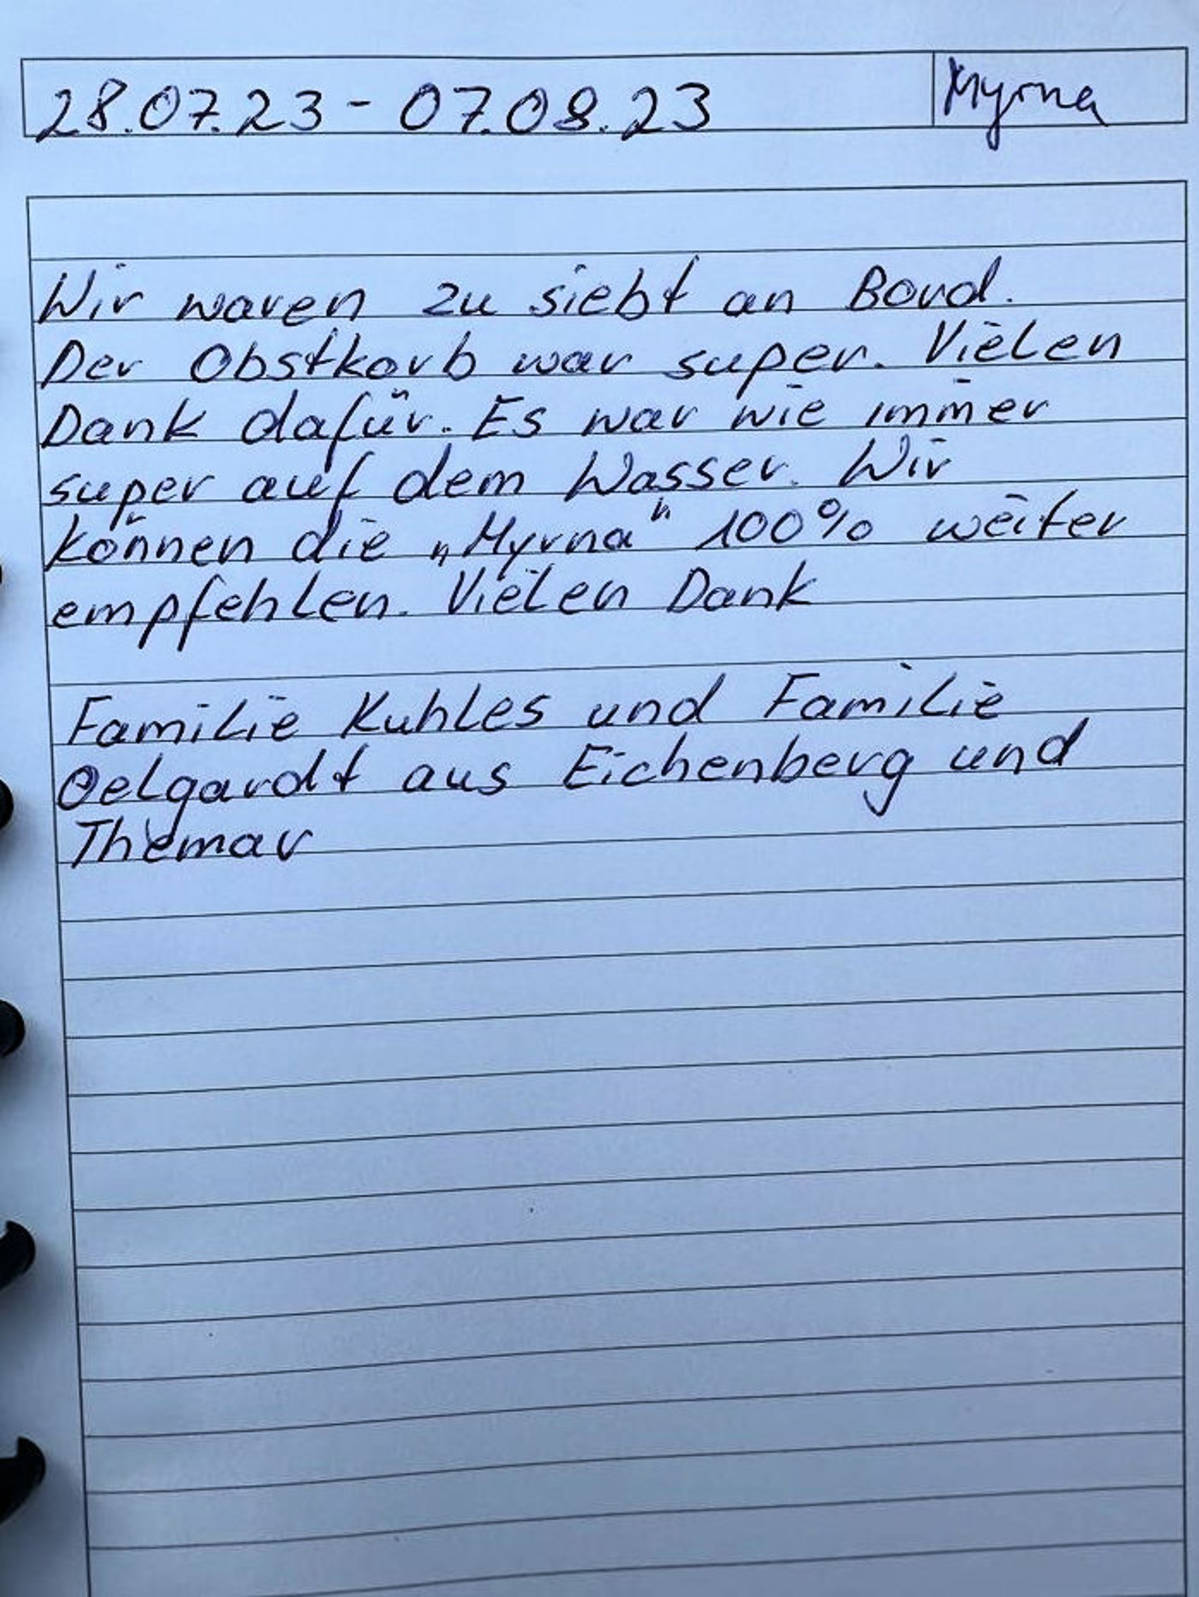 28.07.23 - 07.08.23 Myrna
Wir waren zu siebt an Bord.
Der Obstkorb war super. Vielen
Dank dafür. Es war wie immer
super auf dem Wasser. Wir
können die „Myrna" 100% weiter
empfehlen. Vielen Dank
Familie Kuhles und Familie
Oelgardt aus Eichenberg und
Themar